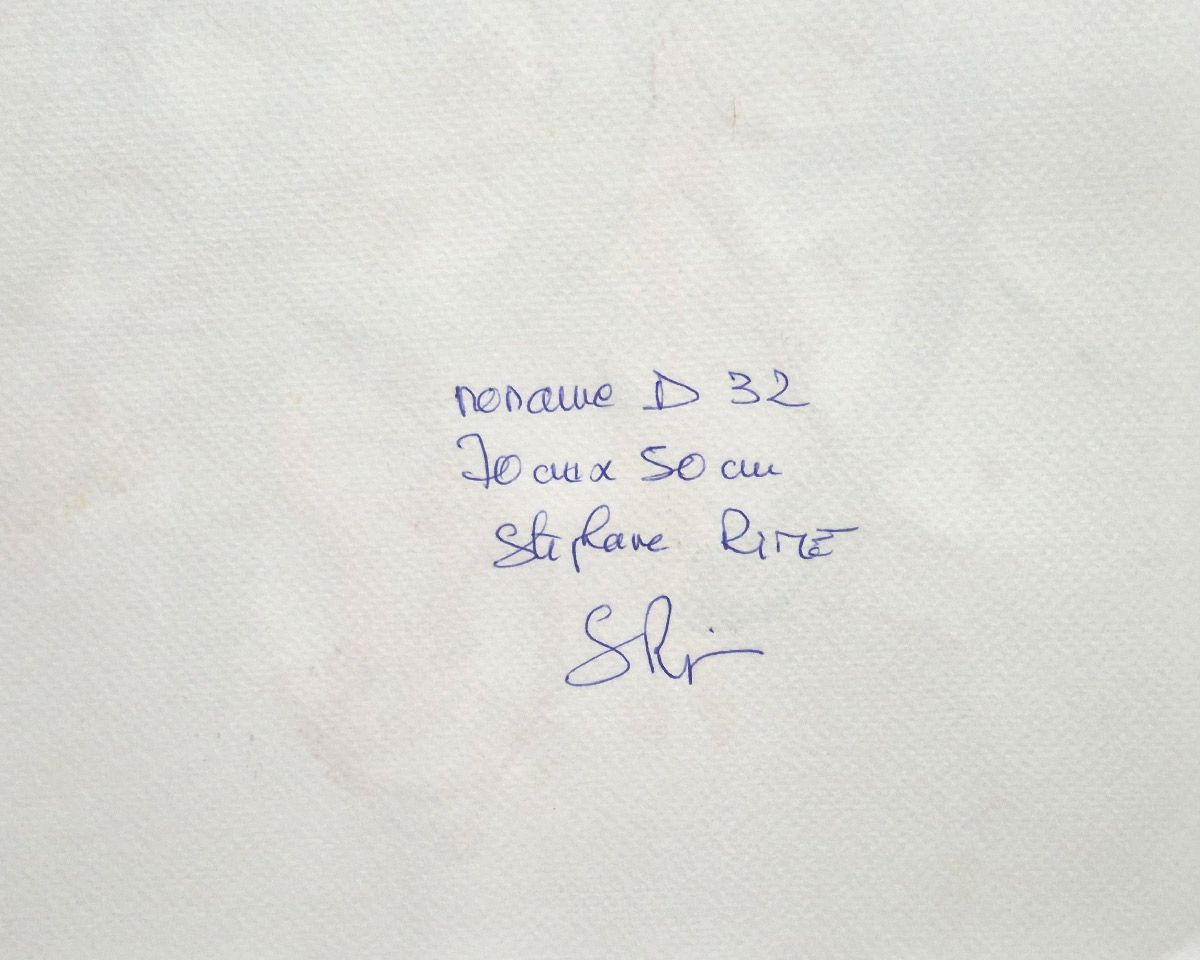 noname D 32
70cm x 50cm
Stéphane RIMÉ
SRi